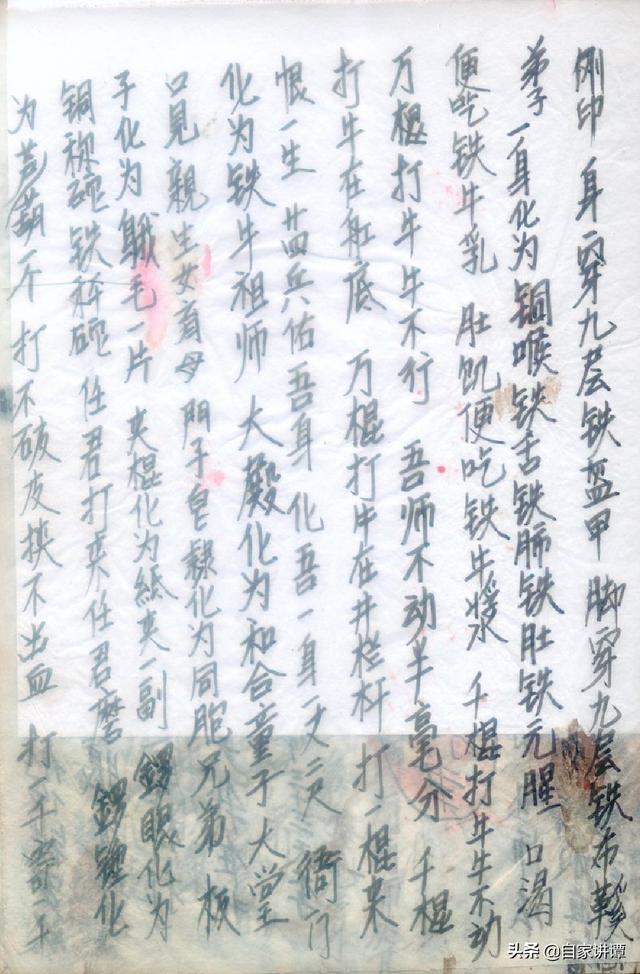 倒印 身穿九层铁盔甲 脚穿九层铁布鞋
弟子一身化为铜喉铁舌铁肺铁肚铁元腥 口渴
便吃铁牛乳 肚饥便吃铁牛浆水 千棍打牛牛不动
万棍打牛牛不行 吾师不动半毫分 千棍
打牛在缸底 万棍打牛在井栏杆 打一棍来
恨一生 廿四兵佑吾身 化吾一身一丈二尺 衙门
化为铁牛祖师 大殿化为和合童子大堂
口見親生父首母 門子皂隸化为同胞兄弟 板
子化为鵝毛一片 夹棍化为紙夹一副 鑼眼化为
铜称碗铁秤碗 任君打来任君磨 鑼锤化
为芦葫一个 打不破皮揆不出血 打一千寄一千
头条 @自家讲谭